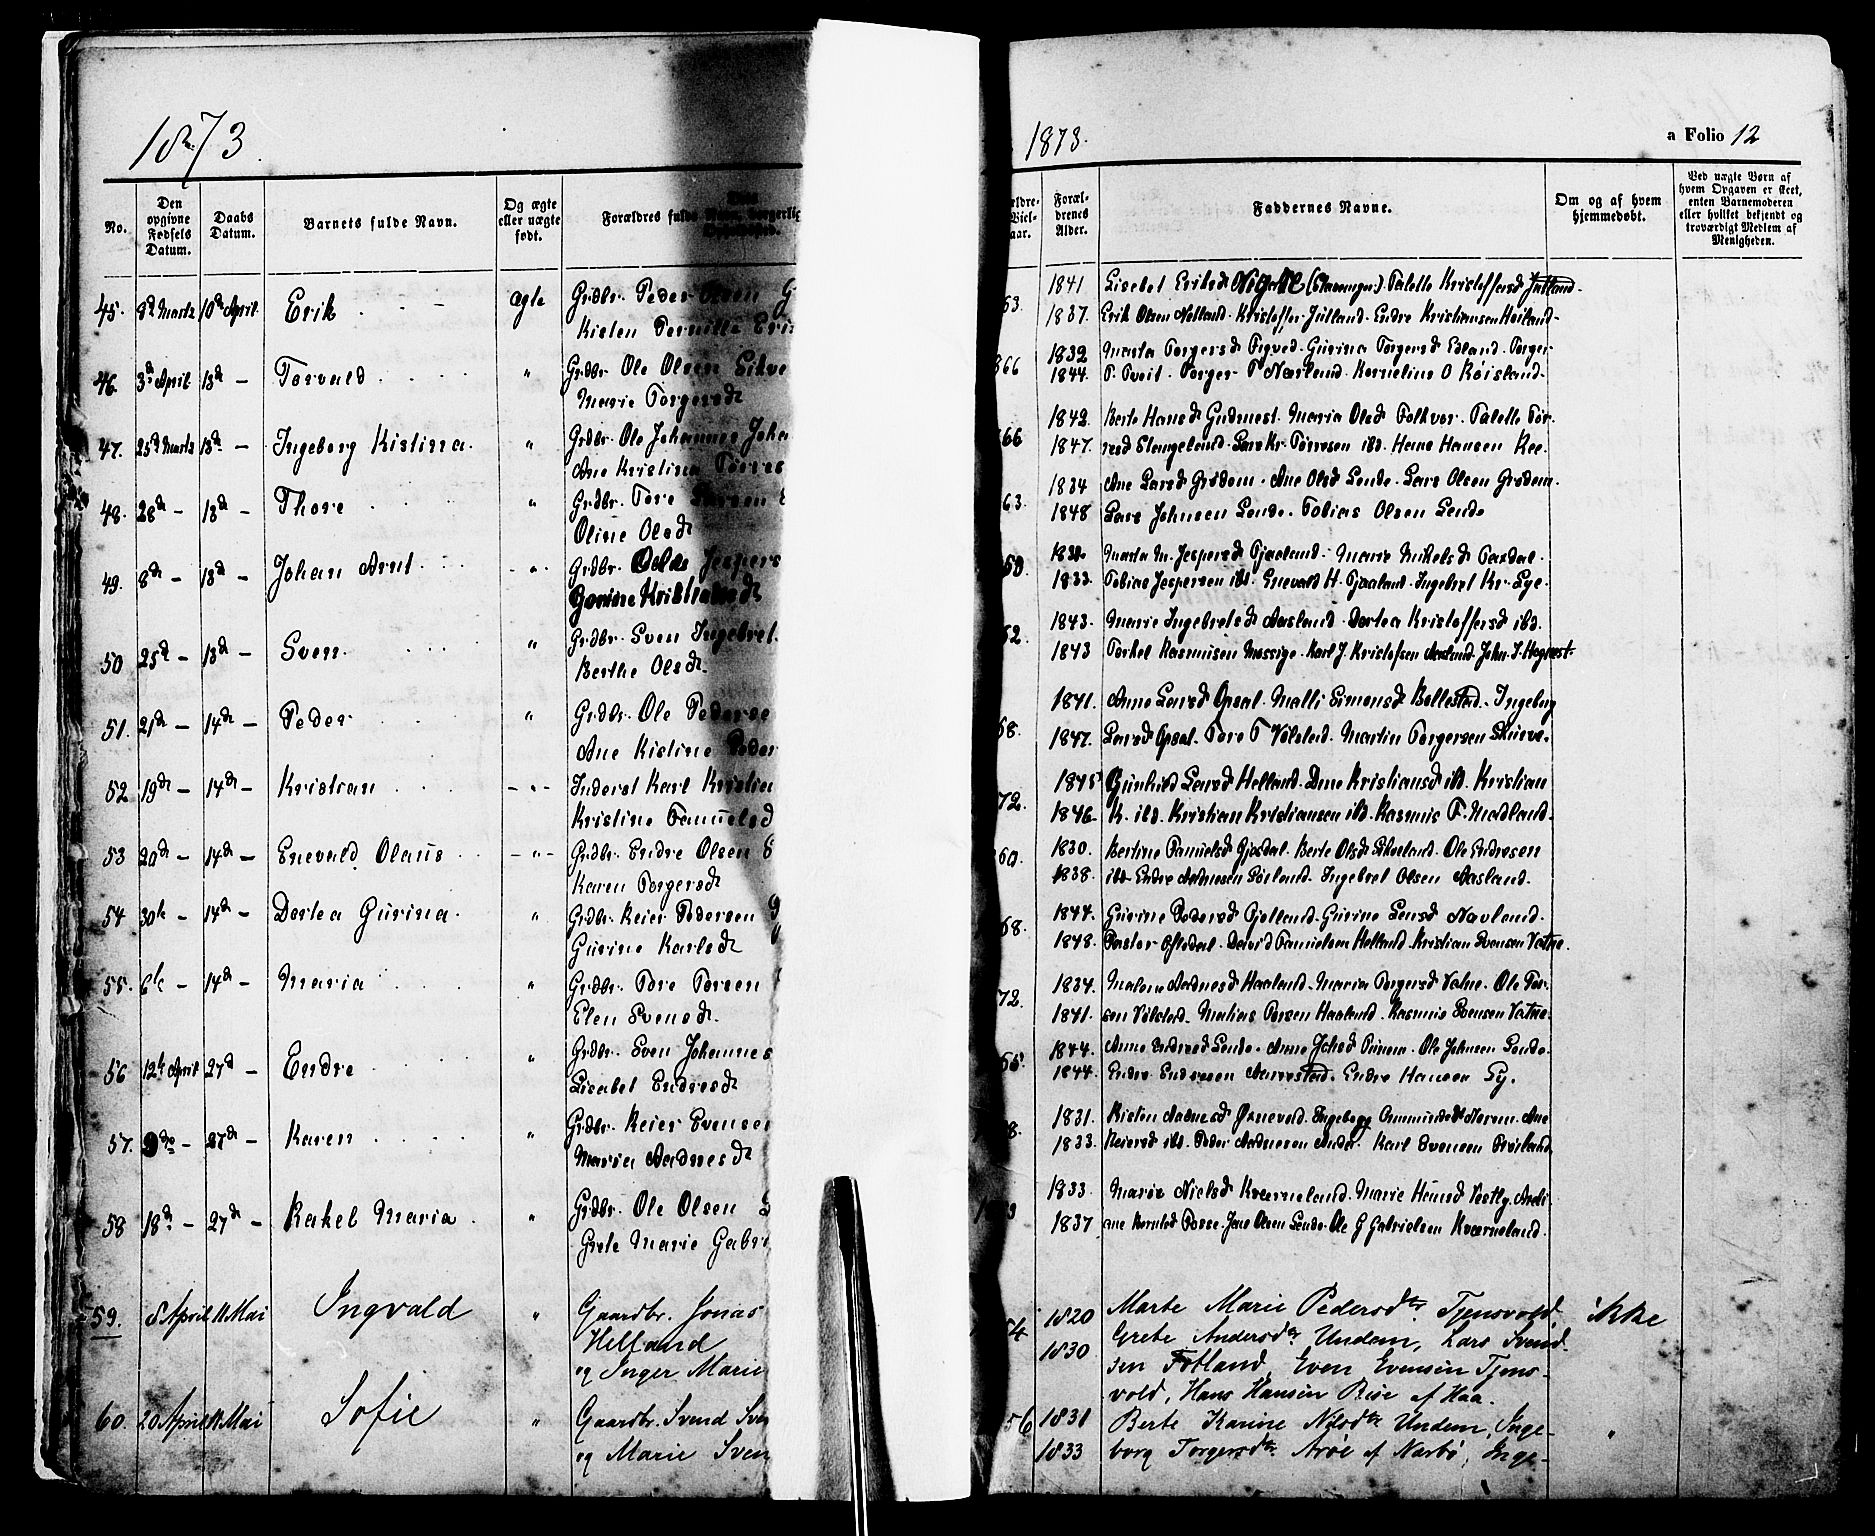 1873.
1873.
a Folio 12
No.
Den opgivne Fødsels Datum.
Daabs Datum.
Barnets fulde Navn.
Og ægte eller uægte født.
Forældres fulde Navn, Borgerlig
Foræl-drenes Alder.
Faddernes Navne.
Om og af hvem hjemmedøbt.
Ved uægte Børn af hvem Opgaven er skeet, enten Barnemoderen eller hvilket bekjendt og troværdigt Medlem af Menigheden.
45. 8d Marts 10de April. Erik ægte Grdbr. Peder Olsen
Kisten Pernille
63. 1841 Lisebet Eriksd (Stavanger) Talette Kristoffersd Jutland.
1837. Erik Olsen Netland. Kristoffer Jutland. Endre Kristiansen Høiland.
46. 3d April 13d – Torvald " Grdbr. Ole Olsen
Marie Torgersdt
866 1832 Marta Torgersd Tigved. Gurina Torgersd Edland. Torger
1844. T. Tveit. Torger T Nærland. Kornelius O Røisland.
47. 25d Marts 13d – Ingeborg Kistina. " Grdbr. Ole Johannes
Ane Kristina Torres
66 1842 Berte Hansd Gudmest. Maria Olsd Folkvor. Talette Tor-
1847. resd Stangeland. Lars Kr. Torresen ibd. Hans Hansen Ree.
48. 28d – 13d – Thore " Grdbr. Tore Larsen
Oline Olsdt
63. 1834 Ane Larsd Grødem. Ane Olsd Lende. Lars Olsen Grødem.
1848 Lars Johnsen Lende. Tobias Olsen Lende
49. 8d – 13d – Johan Arnt " Grdbr. Jespers
50 Marta M. Jespersd Tjaaland. Marie Mikelsd Taxdal.
1833. Tobias Jespersen ibd. Enevald H. Tjaaland. Ingebret Kr. Lye.
50 25d – 13d – Sven " Grdbr. Sven Ingebret.
Berthe Olsdt
62. 1843. Marie Ingebretsd Aasland. Dortea Kristoffersd ibd.
1843 Torkel Rasmusen Mossige. Karl J. Kristofsen Aasland. John I. Hognest.
51. 21d – 14d – Peder " Grdbr. Ole Pederse
Ane Kistine Peder
68. 1841. Anne Larsd Opsal. Malli Simonsd Bollestad. Ingeborg
1847. Larsd Opsal. Tore T Vølstad. Martin Torgersen Skurve.
52 19d – 14d – Kristian – " – Inderst Karl Kristia
Kristine Samuelsd
72. 1845 Gunhild Larsd Helland. Ane Kristiansd ibd. Kristian
1846 K. ibd. Kristian Kristiansen ibd. Rasmus T. Madland.
53 20d – 14d – Enevald Olaus – " – Grdbr. Endre Olsen
Karen Torgersdt
60. 1830. Bertine Danielsd Gjesdal. Berte Olsd Skeeland. Ole Endresen
1838. ibd. Endre Aadnesen Sørland. Ingebret Olsen Aasland.
54 30te – 14d – Dortea Gurina. " Grdbr. Reier Pedersen
Gurine Karlsdt
68. 1844. Gurine Pedersd Gjelland. Gurine Larsd Navland.
1848. Pastor Oftedal. David Danielsen Helland. Kristian Svensen Vatne.
55. 6te – 14d – Maria " Grdbr. Tore Torsen
Elen Svensdt.
72. 1834. Malene Aadnesd Haaland. Maria Torgersd Vatne. Ole Tor-
1841. sen Vølstad. Matias Torsen Haaland. Rasmus Svensen Vatne.
56 12te April 27d – Endre " Grdbr. Sven Johannes
Lisabet Endresdt
65. 1844. Anne Endresd Lende. Anne Johsd. Ole Johnsen Lende.
1844. Endre Endresen Aarrestad. Endre Hansen Ly.
57. 27d – Karen " Grdbr. Reier Svensen
Maria Aadnesdt
8. 1831. Kisten Aadnesd Øsnevold. Ingeborg Ommundsd Norem. Ane
1833. Reiersd ibd. Peder Aadnesen Auda. Karl Svensen
58 18d – 27d – Rakel Maria. " Grdbr. Ole Olsen
Grete Marie Gabri
1833. Marie Nielsd Kverneland. Marie Hansd Vestly. Andi
1837 ane Tosse. Jens Olsen Lende. Ole G Gabrielsen Kværneland.
59. 8 April 11 Mai Ingvald " Gaardbr. Jonas
Helland
og Inger Marie
54 1820 Marte Marie Pedersdtr. Tjensvold, ikke
1830 Grete Andersdtr Undem, Lars Svend-
sen Fotland, Even Evensen Tjens-
vold, Hans Hansen Rise af Haa.
60. 20 April 11 Mai Sofie " Gaardbr. Svend Sven
og Marie Sven
56 1831 Berte Karine Nilsdtr Undem, Inge- "
1833 borg Torgersdtr. Aröe af Narbø, Inge-